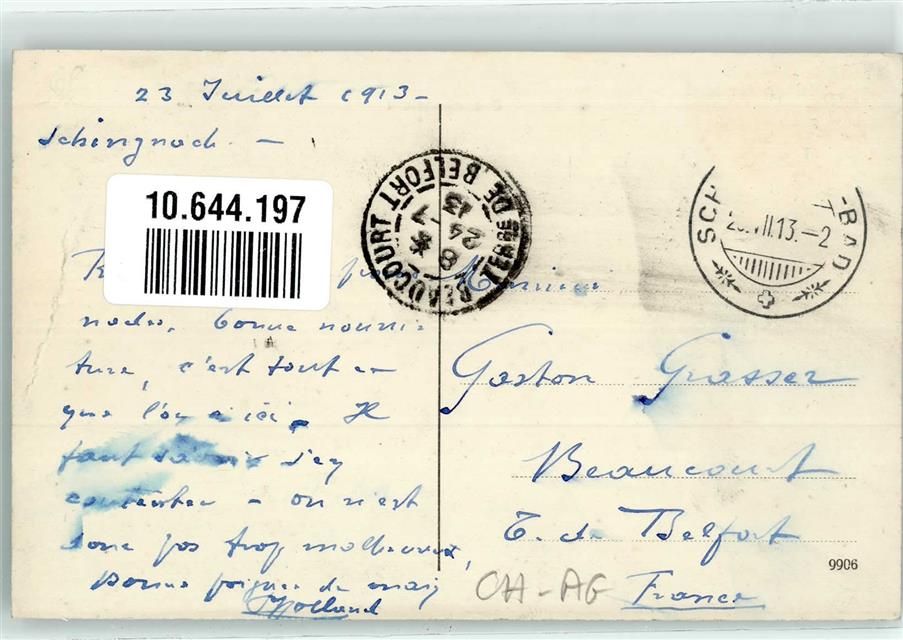 23 Juillet 1913 -
Schinznach -
10.644.197
nades, bonne nourri-
ture, c'est tout ce
que l'on a ici. Il
faut savoir s'en
contenter - on n'est
donc pas trop malheureux,
Bonne poignée de main
BEAUCOURT TERRE DE BELFORT
8 *
24 7
13
SCH -BAD
.VII.13.-2
Monsieur
Gaston Grasser
Beaucourt
T. de Belfort
France
CH-AG
9906